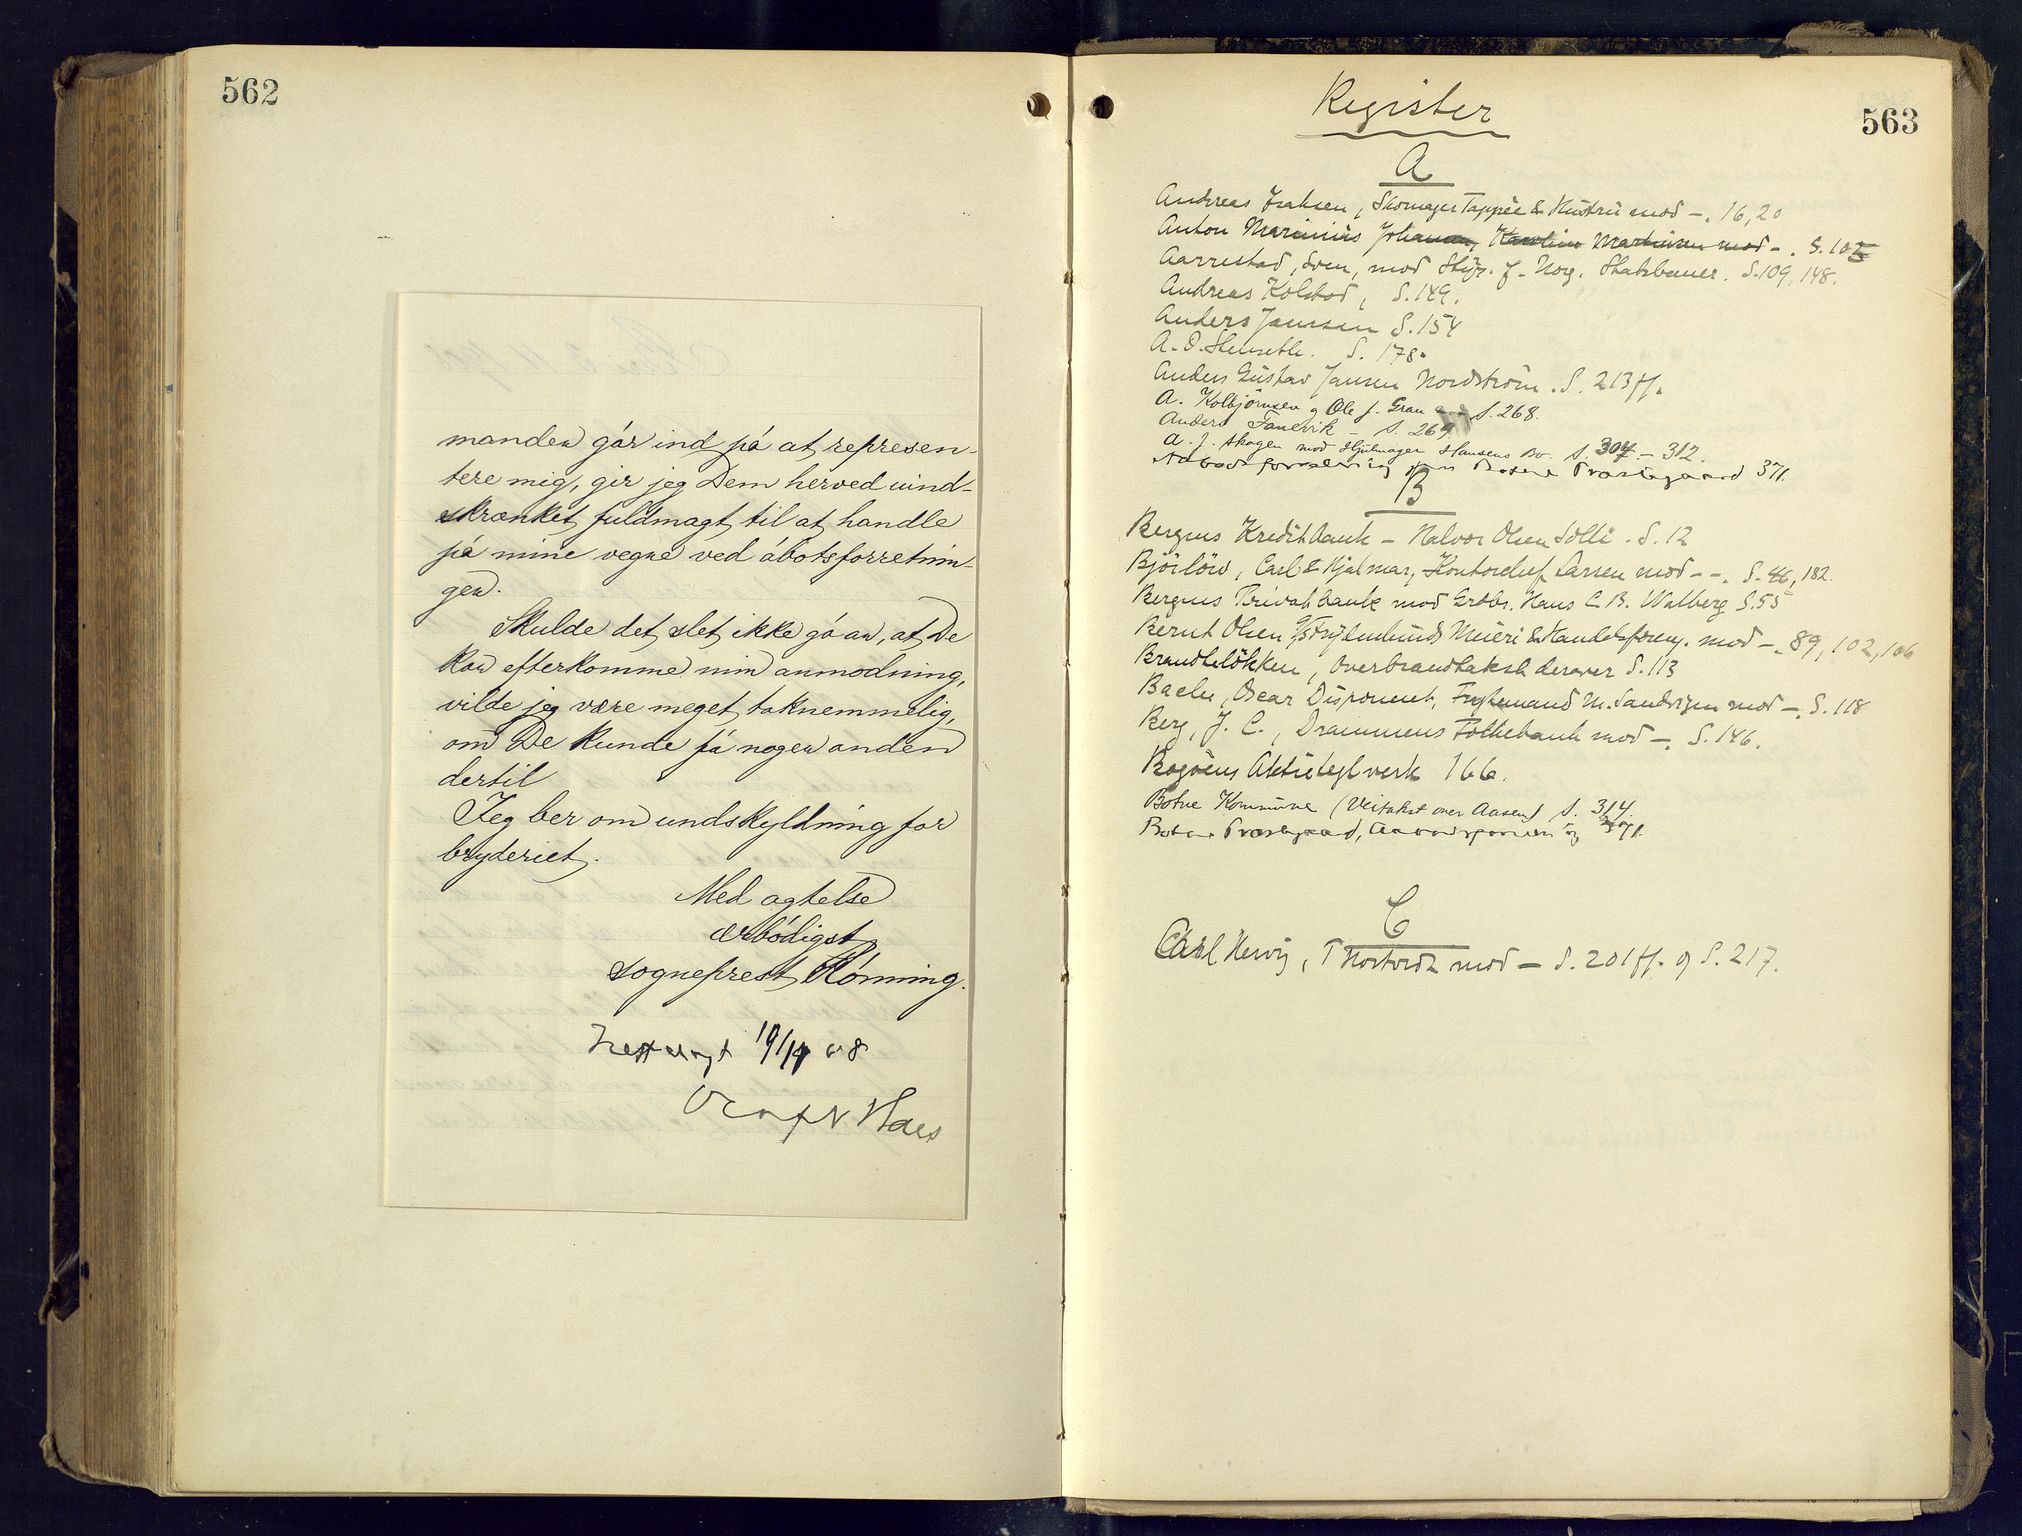 562
manden går ind på at represen-
tere mig, gir jeg Dem herved uind-
skrænket fuldmagt til at handle
på mine vegne ved åbotsforretnin-
gen.
Skulde det slet ikke gå an, at De
kan efterkomme min anmodning,
vilde jeg være meget taknemmelig,
om De kunde få nogen anden
dertil
Jeg ber om undskyldning for
bryderiet.
Med agtelse
ærbødigst
sogneprest Rönning.
19/11 08
563
Register
A
Andreas Isaksen, Skomager Tappée & Hustru mod -. 16, 20
Anton Marinius Johansen, Karoline Martinsen mod -. S. 105
Aarrestad, Sven, mod Styr. f. Norg. Statsbaner. S. 109, 148.
Andreas Kolstad, S. 149.
Anders Jansen S. 154
A. O. Stenseth. S. 178.
Anders Gustav Jansen Nordström. S. 213 ff.
A. Kolbjörnsen og Ole J. Gran S. 268.
Anders Tanevik - S. 269
A. J. Skogen mod Hjulmager Hansens Bo. S. 307 - 312.
Aabodsforretning Botne Præstegaard 371.
B
Bergens Kreditbank - Halvor Olsen Solli. S. 12
Björlöw, Carl & Hjalmar, Kontorchef Larsen mod --. S. 46, 182.
Bergens Privatbank mod Grdbr. Hans C. B. Walberg S. 55
Bernt Olsen Meieri & Handelsforen. mod -. 89, 102, 106
Brandtlökken, Overbrandtakst derover S. 113
Bache, Oscar Disponent, M. Sandvigen mod -. S. 118
Berg, J. C., Drammens Folkebank mod -. S. 146.
Bogöens Aktieteglverk 166.
Botne Kommune (Veitakst over Aasen) S. 314.
Botne Præstegaard, Aabodsforretning 371.
C
Carl Hervig, mod - S. 201 ff. og S. 217.